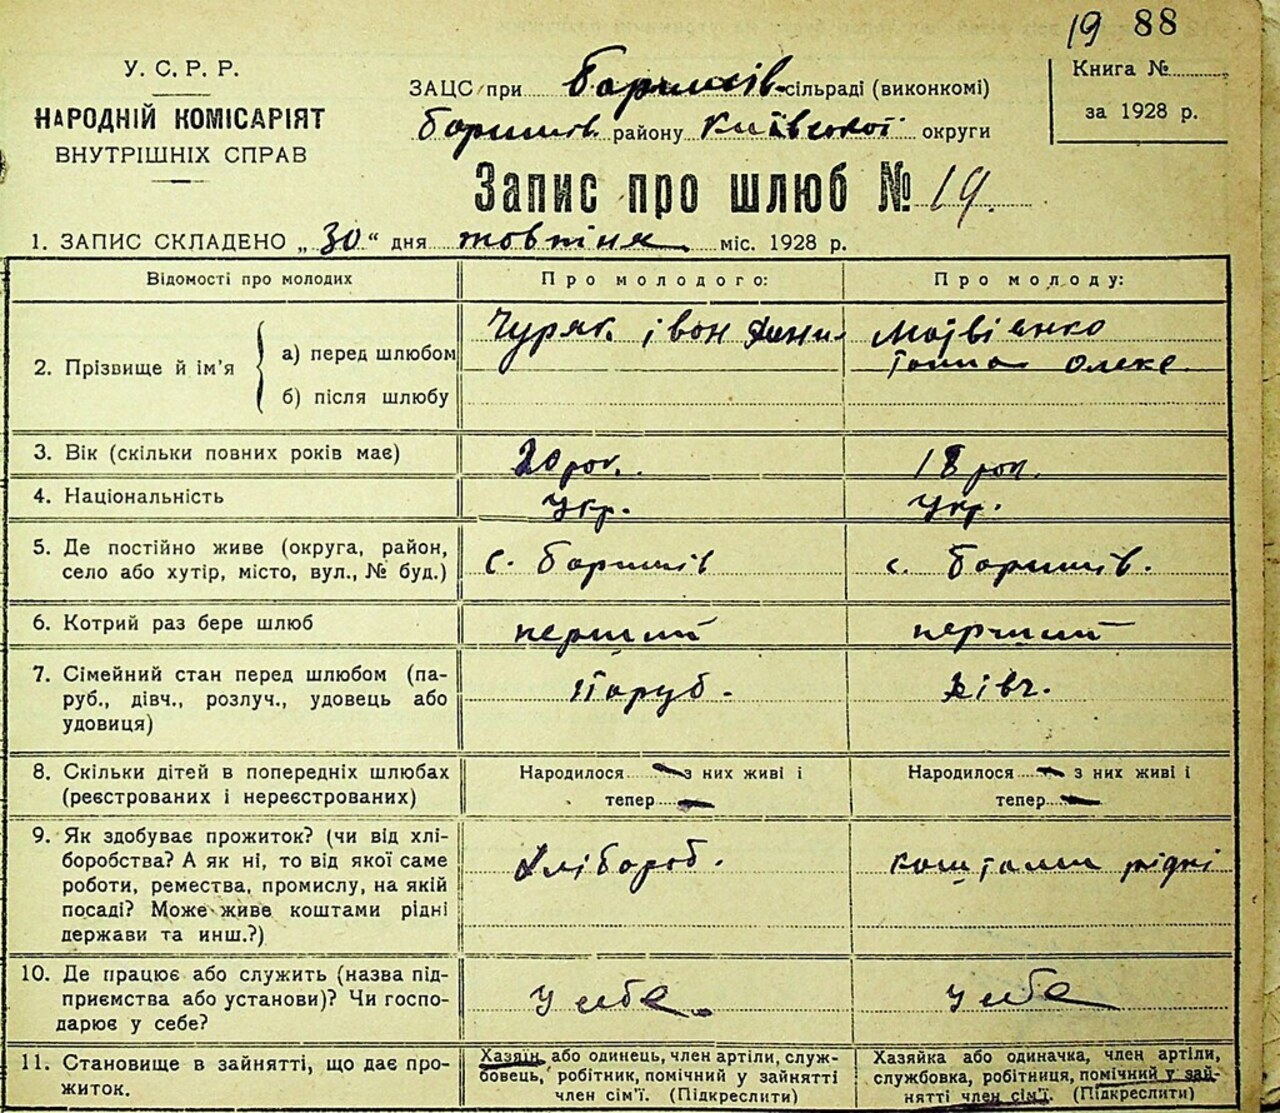 19 88
У. С. Р. Р.
НАРОДНІЙ КОМІСАРІЯТ
ВНУТРІШНІХ СПРАВ
ЗАЦС при Баришів сільраді (виконкомі)
Баришів. району Київської округи
Книга №
за 1928 р.
Запис про шлюб № 19.
1. ЗАПИС СКЛАДЕНО „30“ дня жовтня міс. 1928 р.
Відомості про молодих
Про молодого:
Про молоду:
2. Прізвище й ім’я
а) перед шлюбом
б) після шлюбу
Чуряк. Іван Дани
Матвієнко
Ганна Олекс
3. Вік (скільки повних років має)
20 рок.
18 рок.
4. Національність
Укр.
Укр.
5. Де постійно живе (округа, район,
село або хутір, місто, вул., № буд.)
с. Баришів
с. Баришів.
6. Котрий раз бере шлюб
перший
перший
7. Сімейний стан перед шлюбом (па-
руб., дівч., розлуч., удовець або
удовиця)
Паруб.
Дівч.
8. Скільки дітей в попередніх шлюбах
(реєстрованих і нереєстрованих)
Народилося — з них живі і
тепер —
Народилося — з них живі і
тепер —
9. Як здобуває прожиток? (чи від хлі-
боробства? А як ні, то від якої саме
роботи, ремества, промислу, на якій
посаді? Може живе коштами рідні
держави та инш.?)
Хлібороб.
коштами рідні
10. Де працює або служить (назва під-
приємства або установи)? Чи госпо-
дарює у себе?
У себе
У себе
11. Становище в зайнятті, що дає про-
житок.
Хазяїн або одинець, член артіли, служ-
бовець, робітник, помічний у зайнятті
член сім’ї. (Підкреслити)
Хазяйка або одиначка, член артіли,
службовка, робітниця, помічний у зай-
нятті член сім’ї. (Підкреслити)